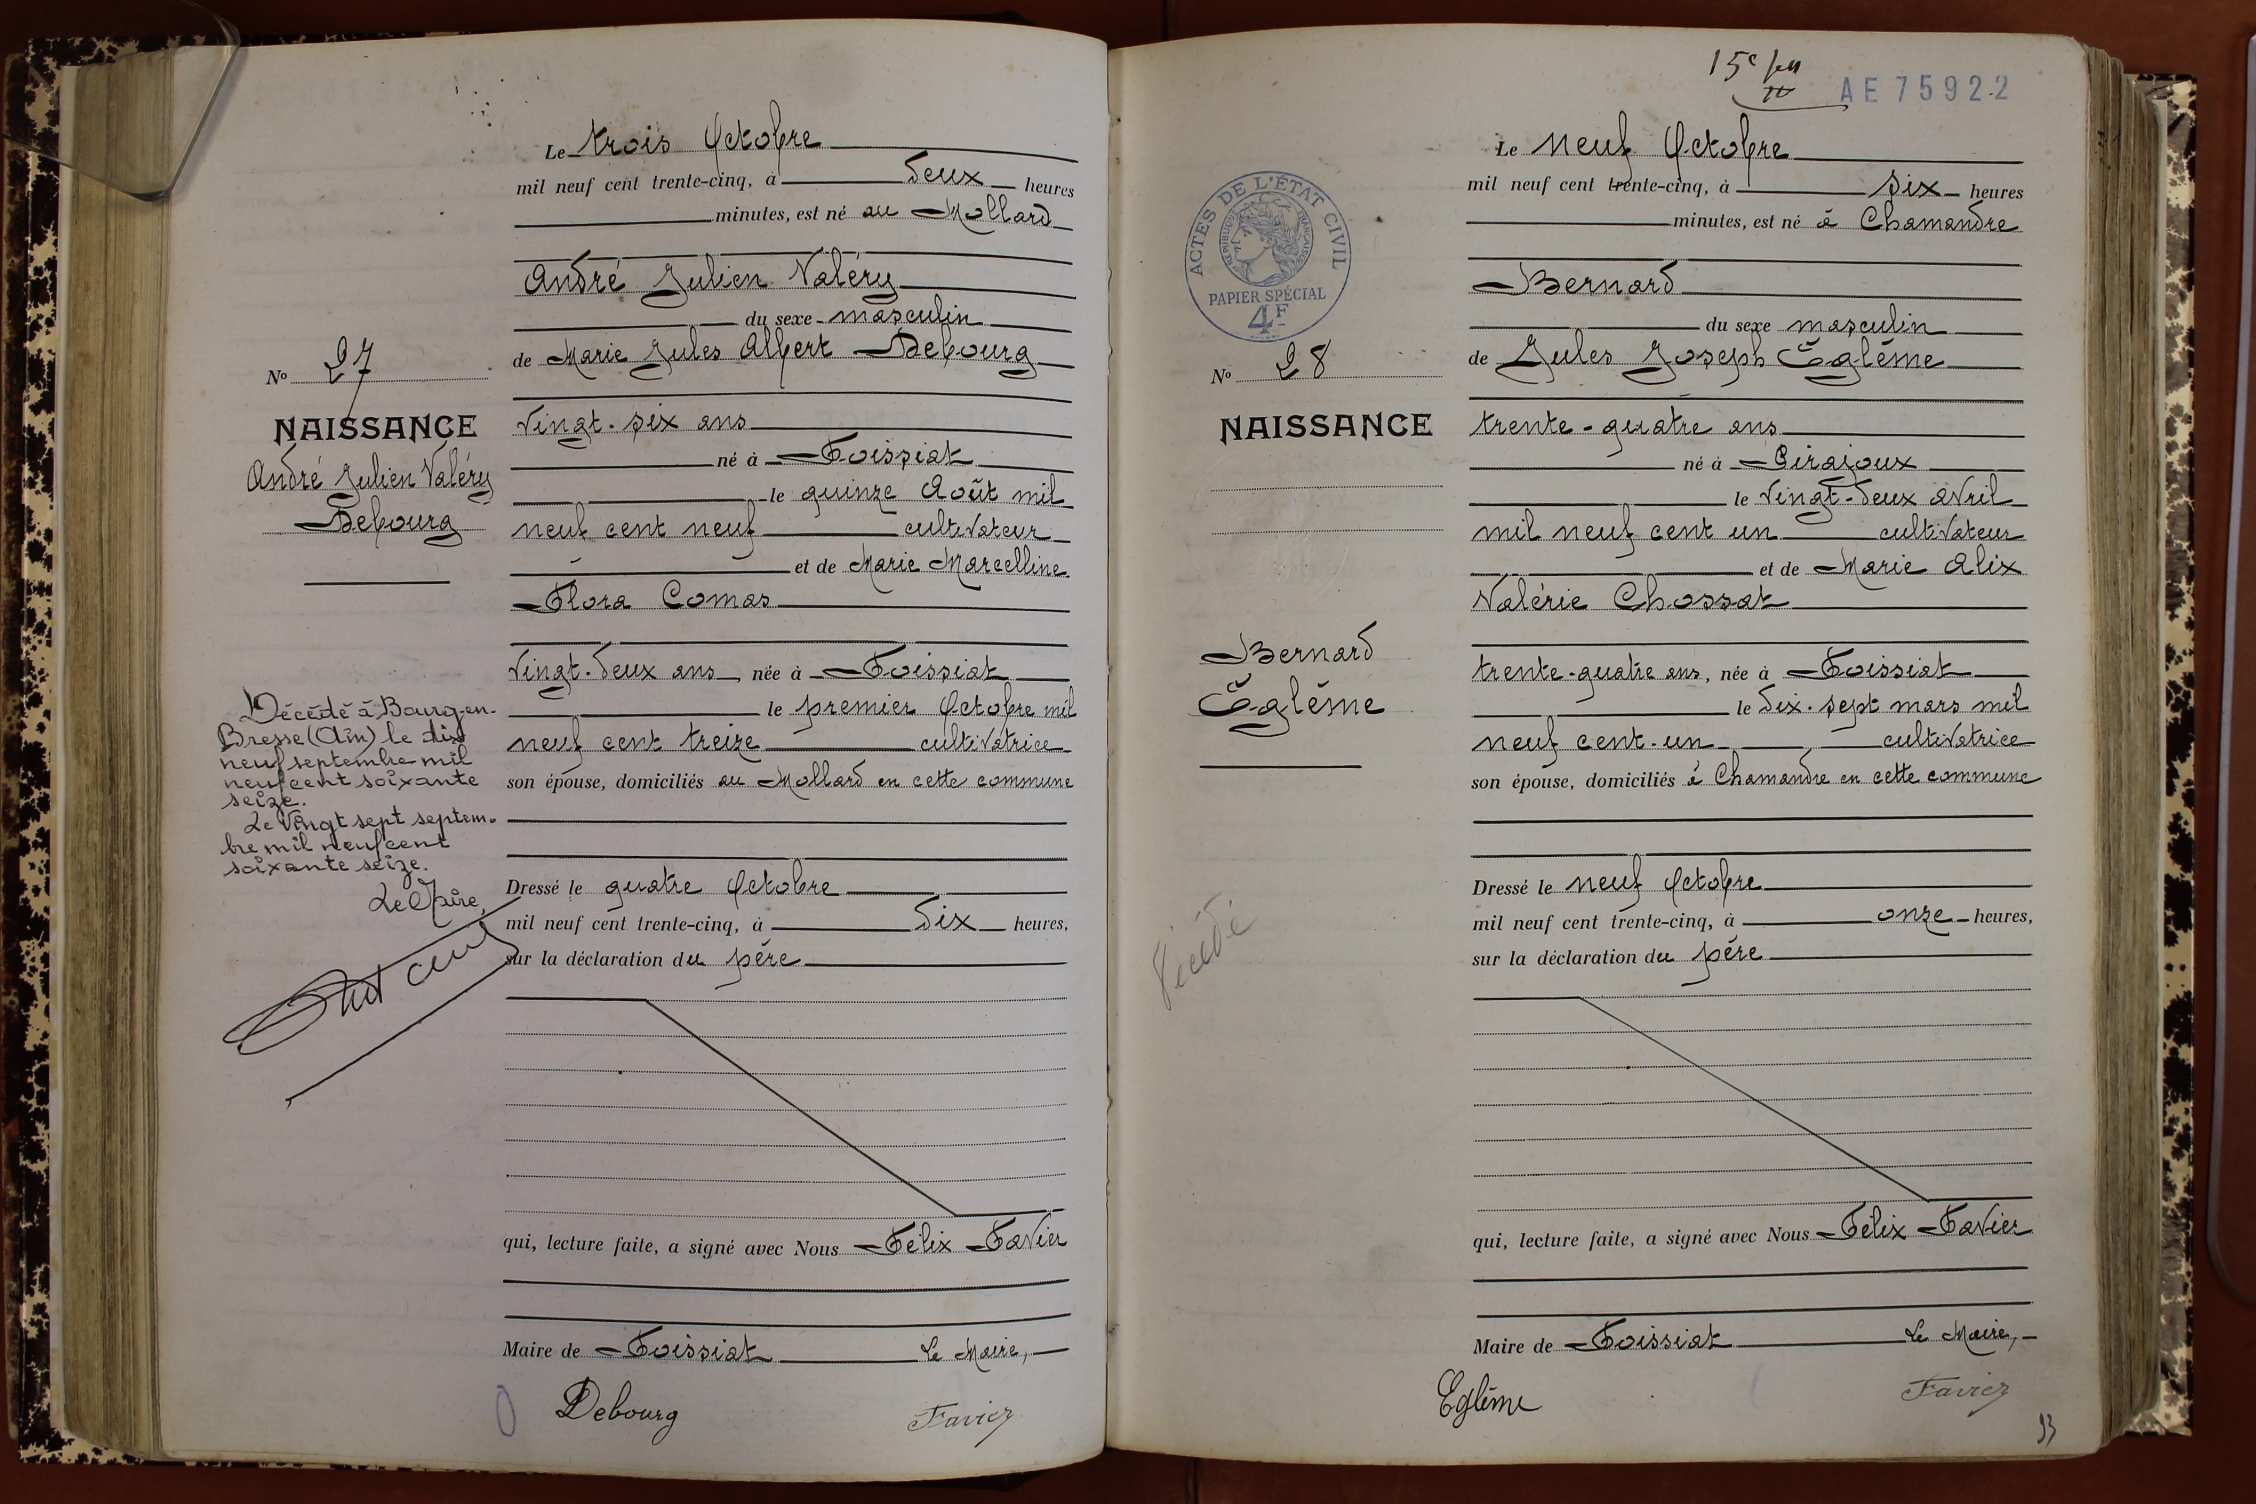 Le trois Octobre
mil neuf cent trente-cinq, à deux heures
minutes, est né au Mollard
André Julien Valéry
du sexe masculin
de Marie Jules Albert Debourg
vingt-six ans
né à Foissiat
le quinze Août mil
neuf cent neuf cultivateur
et de Marie Marcelline
Flora Comas
vingt-deux ans née à Foissiat
le premier Octobre mil
neuf cent treize cultivatrice
son épouse, domiciliés au Mollard en cette commune
Dressé le quatre Octobre
mil neuf cent trente-cinq, à dix heures,
sur la déclaration du père
qui, lecture faite, a signé avec Nous Félix Favier
Maire de Foissiat Le Maire,
Debourg Favier
No 27
NAISSANCE
André Julien Valéry
Debourg
Décédé à Bourg-en-
Bresse (Ain) le dix
neuf septembre mil
neuf cent soixante
seize.
Le vingt sept septem-
bre mil neuf cent
soixante seize.
Le Maire,
15e
AE 75922
Le neuf Octobre
mil neuf cent trente-cinq, à six heures
minutes, est né à Chamandre
Bernard
du sexe masculin
de Jules Joseph Eglème
trente-quatre ans
né à Pirajoux
le vingt-deux avril
mil neuf cent un cultivateur
et de Marie Alix
Valérie Chossat
trente-quatre ans, née à Foissiat
le dix-sept mars mil
neuf cent-un cultivatrice
son épouse, domiciliés à Chamandre en cette commune
Dressé le neuf Octobre
mil neuf cent trente-cinq, à onze heures,
sur la déclaration du père
qui, lecture faite, a signé avec Nous Félix Favier
Maire de Foissiat Le Maire,
Eglème Favier
93
ACTES DE L'ÉTAT CIVIL
RÉPUBLIQUE FRANÇAISE
PAPIER SPÉCIAL
4F
No 28
NAISSANCE
Bernard
Eglème